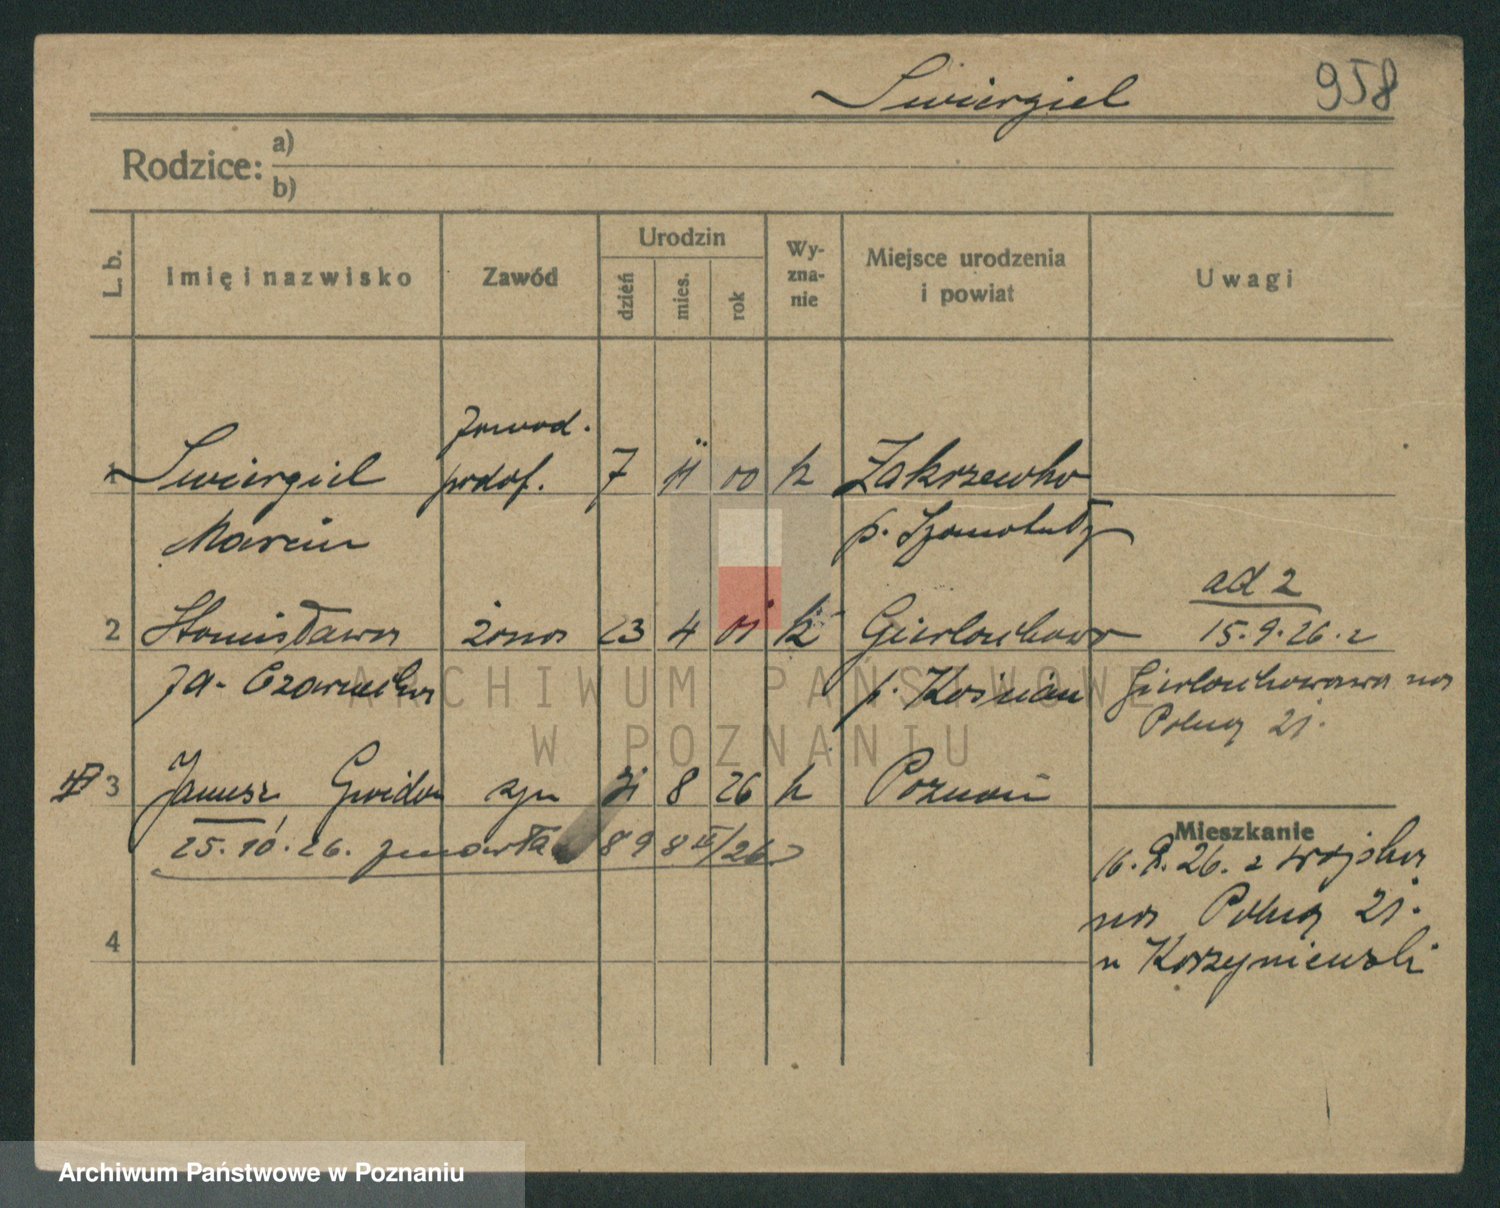 Swiergiel
958
Rodzice: a)
b)
L. b.
Imię i nazwisko
Zawód
Urodzin
dzień
mies.
rok
Wy-
zna-
nie
Miejsce urodzenia
i powiat
Uwagi
1 Swiergiel
Marcin
zawod.
podof.
7 11 00 k
Zakrzewko
p. Szamotuły
2 Stanisława żona 23 4 01 k Gierłachowo
za- Czarnecka p. Kościan
ad 2
15.9.26. z
Gierłachowa na
Polną 21.
3 Janusz Gwidon syn 31 8 26 k Poznań
25.10.26.
8 III/26
Mieszkanie
16.9.26. z wojska
na Polną 21.
u Korzyniewski
4
ARCHIWUM PAŃSTWOWE
W POZNANIU
Archiwum Państwowe w Poznaniu